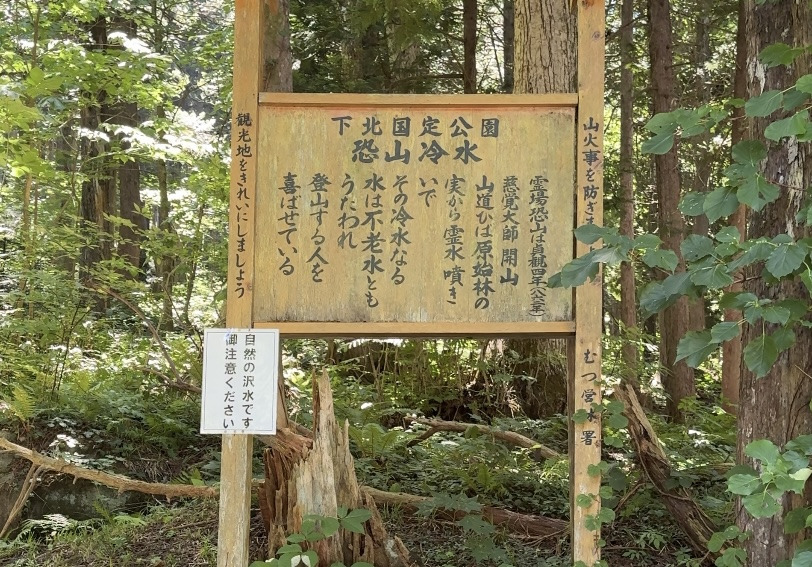 下北国定公園
恐山冷水
霊場恐山は貞観四年(公
慈覚大師 開山
山道ひば原始林の
実から霊水 噴き
いで
その冷水なる
水は不老水とも
うたわれ
登山する人を
喜ばせている
山火事を防ぎま
むつ営林署
観光地をきれいにしましょう
自然の沢水です
御注意ください